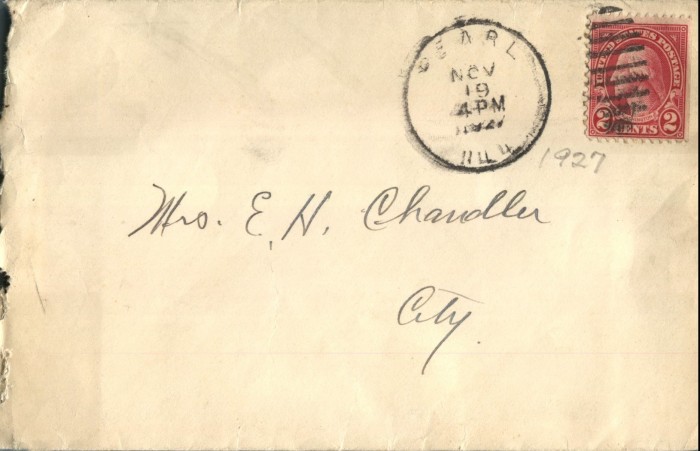 PEARL
NOV
19
4 PM
1927
ILL.
UNITED STATES POSTAGE
2 CENTS 2
1927
Mrs. E. H. Chandler
City.